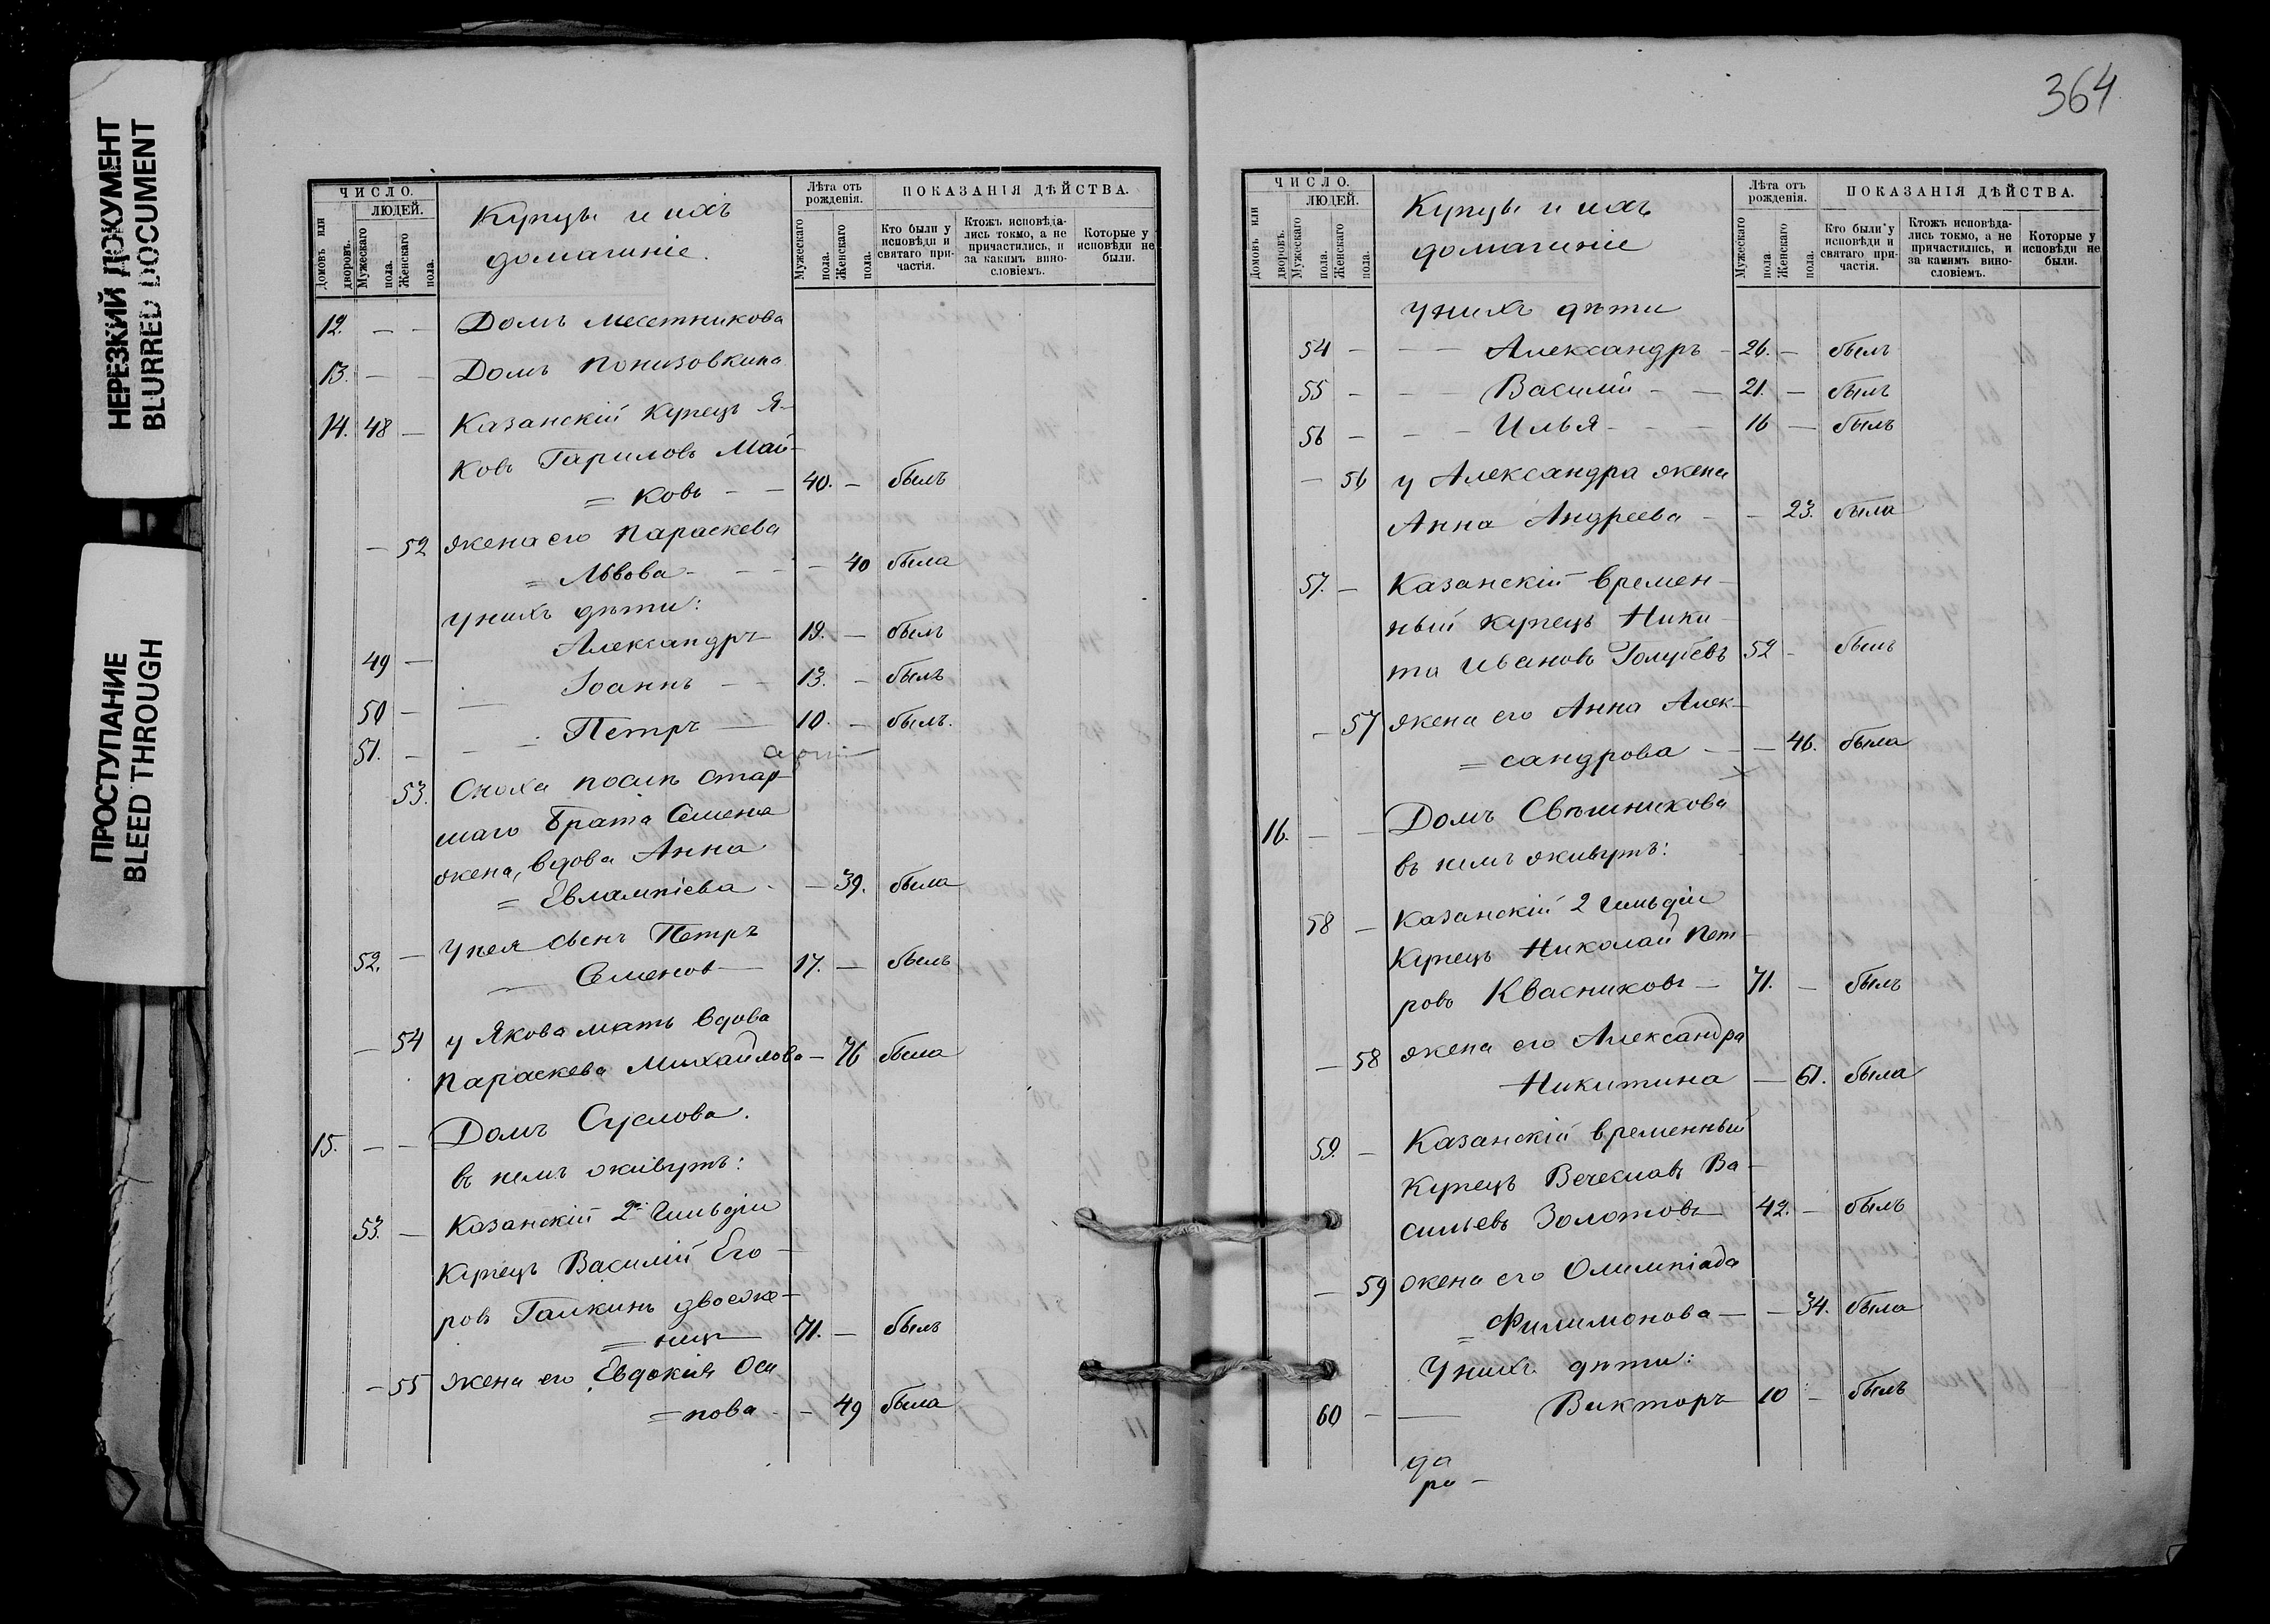 НЕРЕЗКИЙ ДОКУМЕНТ
BLURRED DOCUMENT
ПРОСТУПАНИЕ
BLEED THROUGH
ЧИСЛО.
ЛЮДЕЙ.
Домовъ или дворовъ.
Мужескаго пола.
Женскаго пола.
Купцы и ихъ
домашніе.
Лѣта отъ рожденія.
Мужескаго пола.
Женскаго пола.
ПОКАЗАНІЯ ДѢЙСТВА.
Кто были у исповѣди и святаго причастія.
Ктожъ исповѣдались токмо, а не причастились, и за какимъ винословіемъ.
Которые у исповѣди не были.
12. — — Домъ Месетникова
13. — — Домъ Понизовкина
14. 48 — Казанскій Купецъ Я-
ковъ Гариловъ Май-
= ковъ — — 40. — былъ
— 52 жена его Параскева
= Львова — — — 40 была
У нихъ дѣти:
49 — Александръ 19. — былъ
50 — Іоаннъ — 13. — былъ
51. — Петръ — 10. — былъ.
53. Сноха послѣ стар-
шаго брата Семена
жена, вдова Анна
= Евлампіева — 39. была
52. — У нея сынъ Петръ
— Семенов — 17. — былъ
— 54 у Якова мать вдова
Параскева Михайлова — 76 была
15. — — Домъ Суслова.
въ немъ живутъ:
53. — Казанскій 2й Гильдіи
Купецъ Василій Его-
ровъ Галкинъ двоеже-
= нецъ 71. — былъ
— 55 жена его Евдокія Оси
= пова — — 49 была
364
ЧИСЛО.
ЛЮДЕЙ.
Домовъ или дворовъ.
Мужескаго пола.
Женскаго пола.
Купцы и ихъ
домашніе
Лѣта отъ рожденія.
Мужескаго пола.
Женскаго пола.
ПОКАЗАНІЯ ДѢЙСТВА.
Кто были у исповѣди и святаго причастія.
Ктожъ исповѣдались токмо, а не причастились, и за какимъ винословіемъ.
Которые у исповѣди не были.
У нихъ дѣти
54 — — — Александръ — 26. — былъ
55 — — — Василій — — 21. — былъ
56 — — — Илья — — — 16 — былъ
— 56 у Александра жена
Анна Андреева — — 23. была
57. — Казанскій времен-
ный купецъ Ники-
та Ивановъ Голубевъ 52 — былъ
— 57 жена его Анна Алек-
= сандрова — — 46. была
16. — — Домъ Свѣшникова
въ немъ живутъ:
58 — Казанскій 2 гильдіи
Купецъ Николай Пет-
ровъ Квасниковъ — 71. — былъ
— 58 жена его Александра
Никитина — 61. была
59. — Казанскій временный
Купецъ Вечеславъ Ва-
сильевъ Золотовъ 42. — былъ
— 59 жена его Олимпіада
= Филимонова — — 34. была
У нихъ дѣти:
60 — — Викторъ 10 — былъ
да
ра —